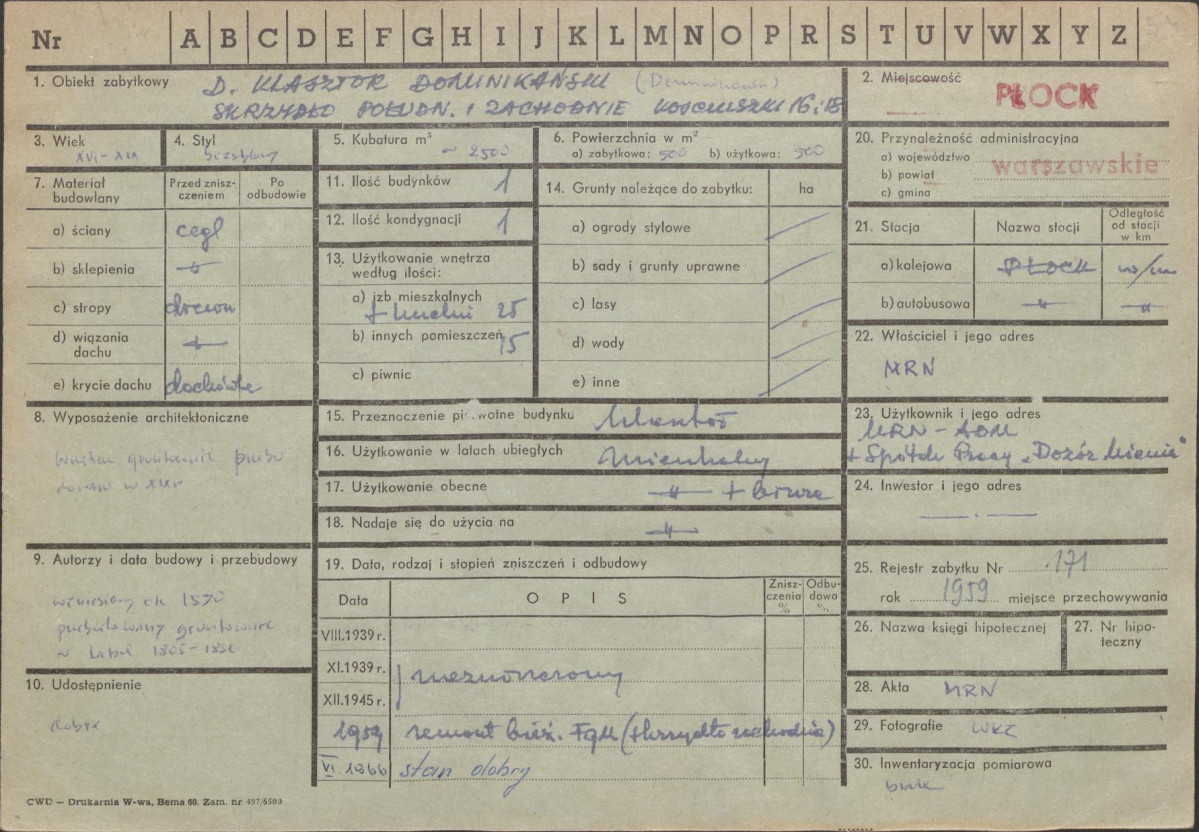 Nr A B C D E F G H I J K L M N O P R S T U V W X Y Z
1. Obiekt zabytkowy D. KLASZTOR DOMINIKAŃSKI
SKRZYDŁO POŁUDN. I ZACHODNIE KOŚCIUSZKI 16 i 18
2. Miejscowość
PŁOCK
3. Wiek
XVI-XIX
4. Styl
bezstylowy
5. Kubatura m³
~ 2500
6. Powierzchnia w m²
a) zabytkowa: 500 b) użytkowa: 500
20. Przynależność administracyjna
a) województwo warszawskie
b) powiat
c) gmina
7. Materiał budowlany
Przed zniszczeniem
Po odbudowie
a) ściany cegł
b) sklepienia -"-
c) stropy drewn
d) wiązania dachu -"-
e) krycie dachu dachówka
11. Ilość budynków 1
12. Ilość kondygnacji 1
13. Użytkowanie wnętrza
według ilości:
a) izb mieszkalnych
+ kuchni 25
b) innych pomieszczeń 15
c) piwnic
14. Grunty należące do zabytku: ha
a) ogrody stylowe
b) sady i grunty uprawne
c) lasy
d) wody
e) inne
21. Stacja Nazwa stacji Odległość od stacji w km
a) kolejowa PŁOCK w/m
b) autobusowa -"- -"-
22. Właściciel i jego adres
MRN
8. Wyposażenie architektoniczne
15. Przeznaczenie pierwotne budynku klasztor
16. Użytkowanie w latach ubiegłych mieszkalny
17. Użytkowanie obecne -"- + biura
18. Nadaje się do użycia na -"-
23. Użytkownik i jego adres
MRN - ADM
+ Spółdz. Pracy „Dozór Mienia"
24. Inwestor i jego adres
-.-
9. Autorzy i data budowy i przebudowy
wzniesiony ok 1570
przebudowany gruntownie
w latach
19. Data, rodzaj i stopień zniszczeń i odbudowy
Data OPIS Zniszczenia % Odbudowa %
VIII.1939 r.
XI.1939 r.
niezniszczony
XII.1945 r.
1959 remont bież. FGM (skrzydło zachodnie)
VI 1966 stan dobry
25. Rejestr zabytku Nr 171
rok 1959 miejsce przechowywania
26. Nazwa księgi hipotecznej
27. Nr hipoteczny
10. Udostępnienie
dobre
28. Akta MRN
29. Fotografie WKZ
30. Inwentaryzacja pomiarowa
brak
CWD — Drukarnia W-wa, Bema 60. Zam. nr 497/6500